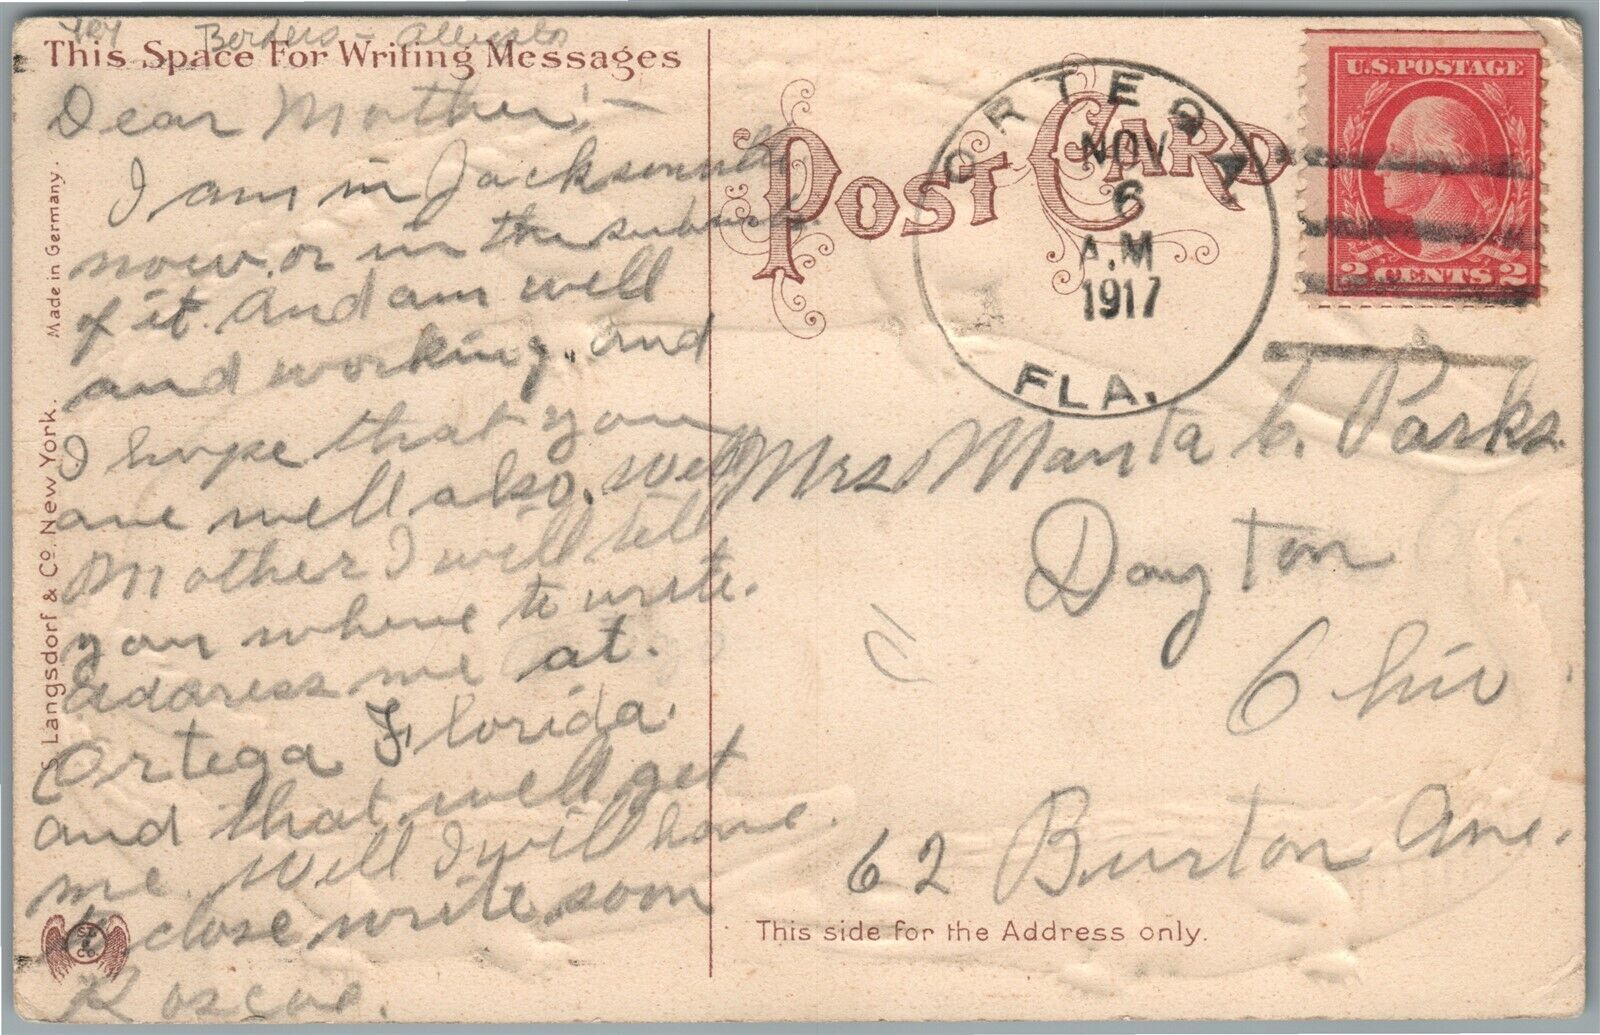 Borders - Alligator
This Space For Writing Messages
Dear Mother! -
I am in Jacksonvill
now. or in the suburbs
of it. And am well
and working, and
I hope that you
are well also. Well
Mother I will tell
you where to write.
address me at.
Ortega Florida.
and that well get
me. Well I will have
to close write soon
Roscoe.
Made in Germany.
S. Langsdorf & Co. New York.
S L & Co
POST CARD
ORTEGA
NOV
6
A.M
1917
FLA.
U.S. POSTAGE
2 CENTS 2
Mrs C. Parks.
Dayton
Ohio
62 Burton Ave.
This side for the Address only.